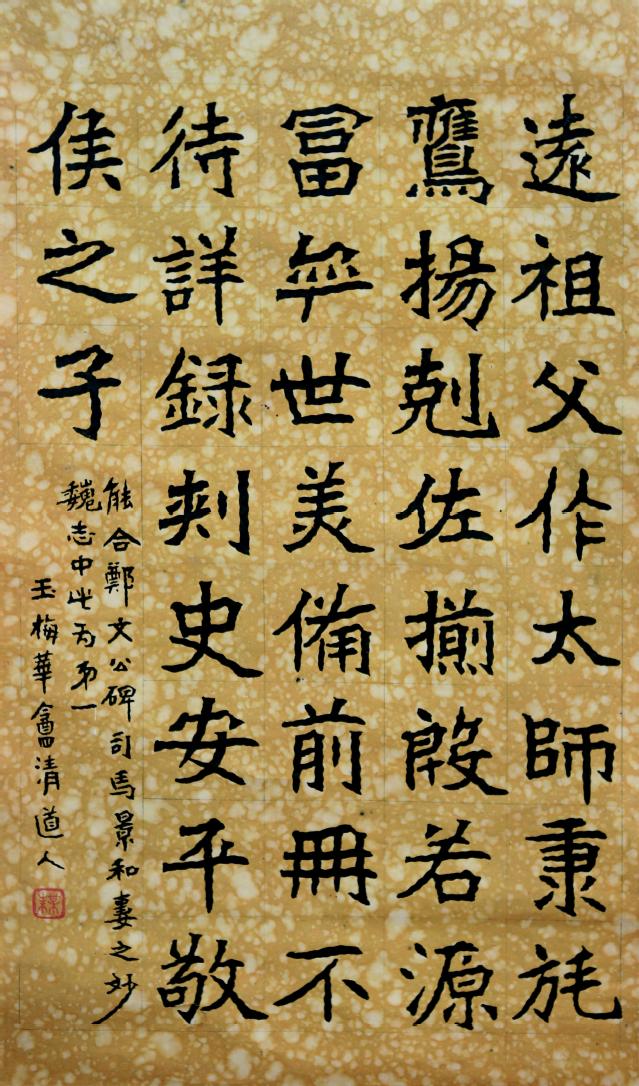 遠祖父作太師秉旄
鷹揚剋佐揃殷若源
冨弈世美備前冊不
待詳録刾史安平敬
侯之子
能合鄭文公碑司馬景和妻之妙
魏志中此為弟一
玉梅華盦清道人